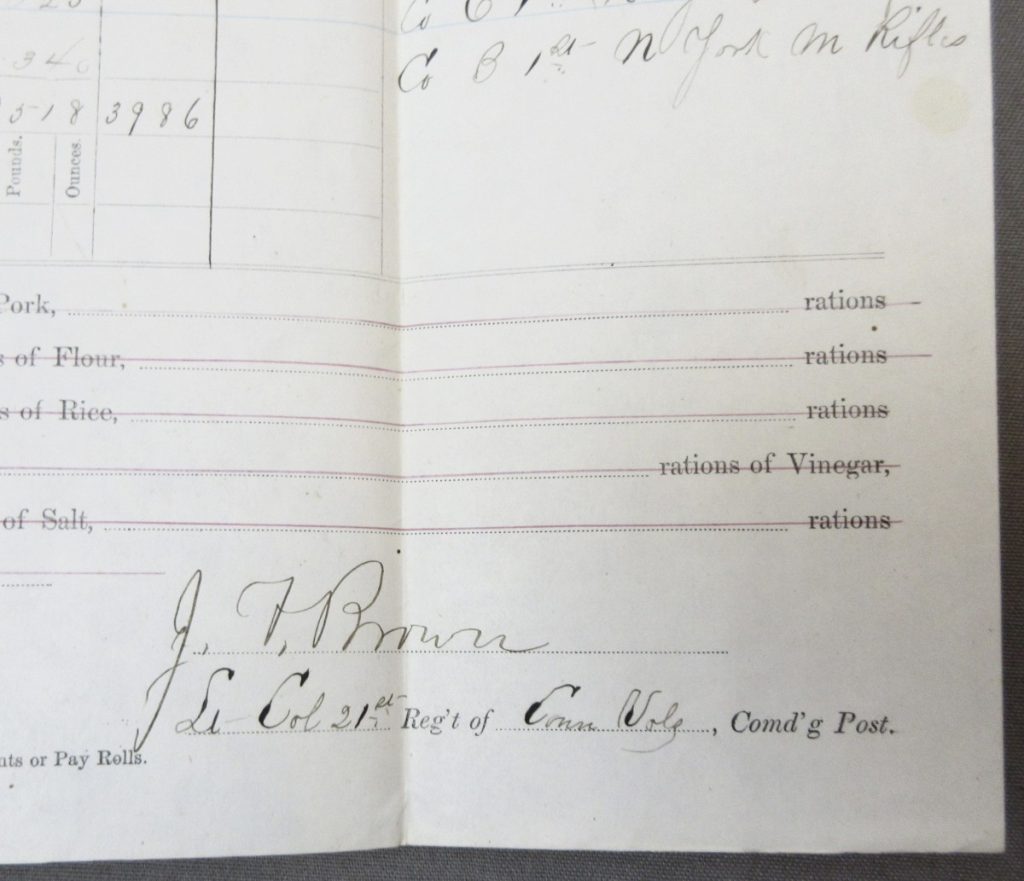 Co
Co B 1st N York M Rifles
518 3986
Pounds. Ounces.
Pork, rations
s of Flour, rations
s of Rice, rations
rations of Vinegar,
of Salt, rations
J. F. Brown
Lt Col 21st Reg't of Conn Vols, Comd'g Post.
nts or Pay Rolls.